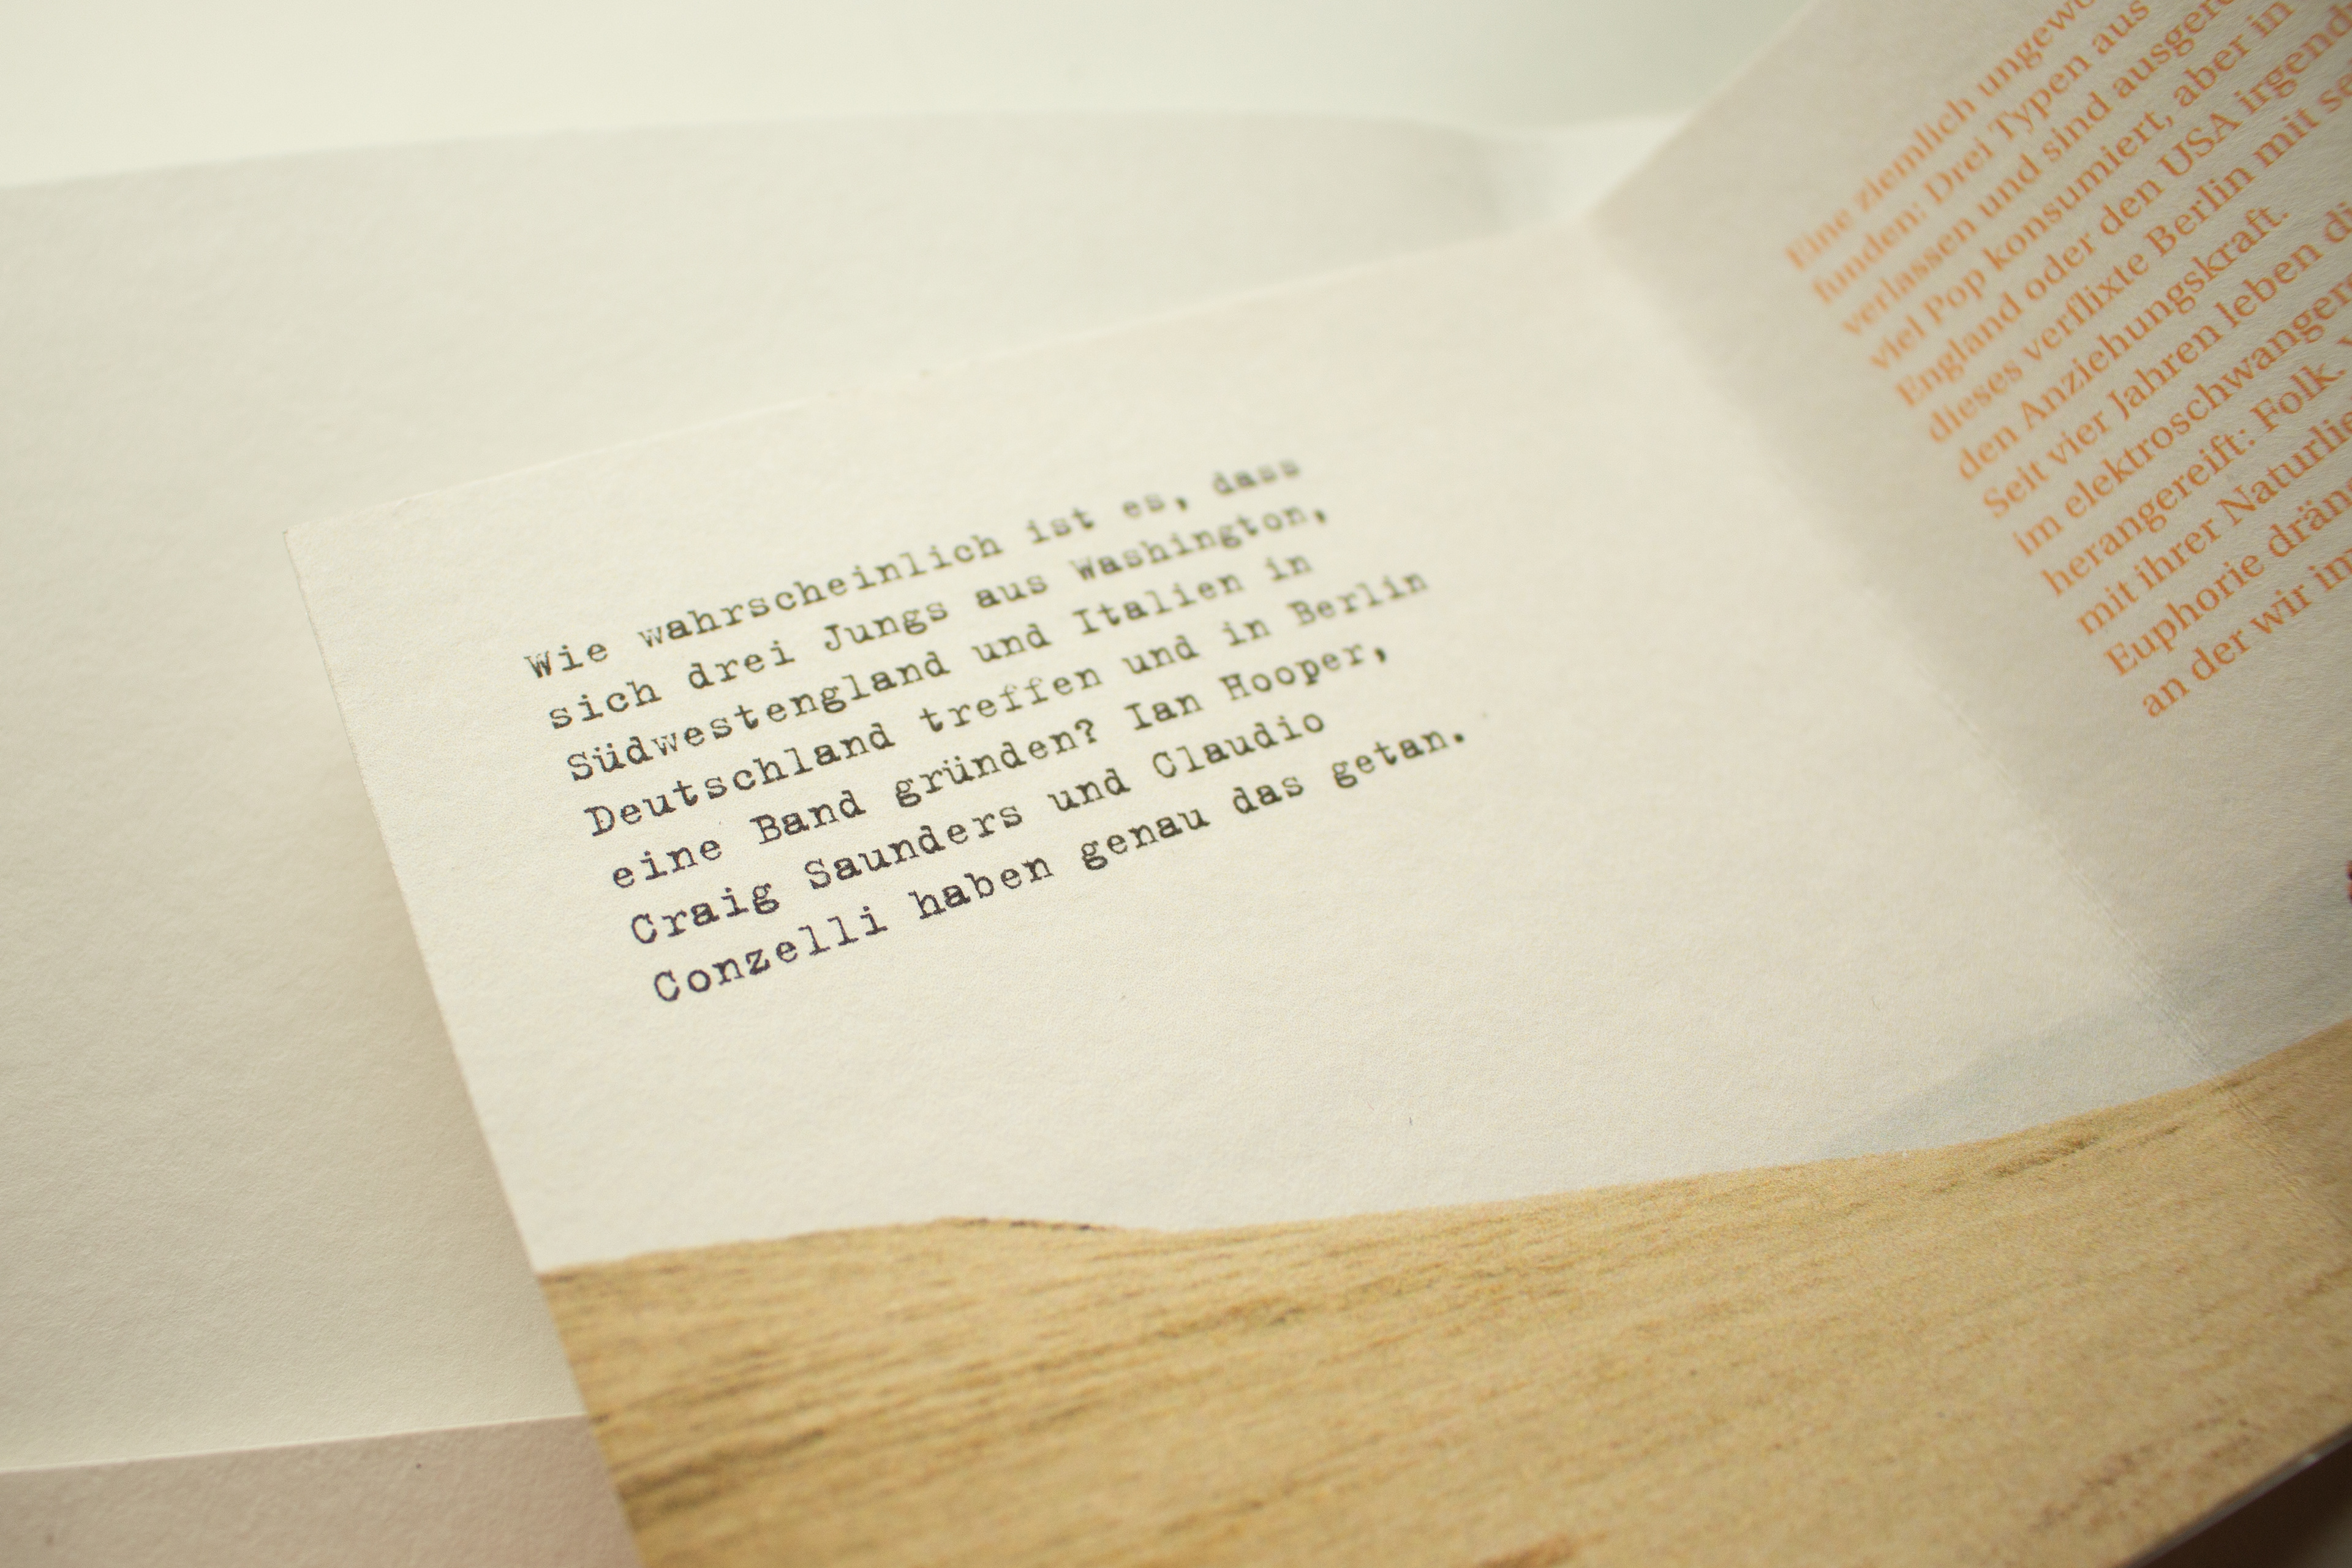 Wie wahrscheinlich ist es, dass
sich drei Jungs aus Washington,
Südwestengland und Italien in
Deutschland treffen und in Berlin
eine Band gründen? Ian Hooper,
Craig Saunders und Claudio
Conzelli haben genau das getan.
Eine ziemlich
funden: Drei Typen aus
verlassen und sind
viel Pop konsumiert, aber in
England oder den USA
dieses verflixte Berlin mit
den Anziehungskraft.
Seit vier Jahren leben
im
herangereift: Folk.
mit ihrer
Euphorie
an der wir